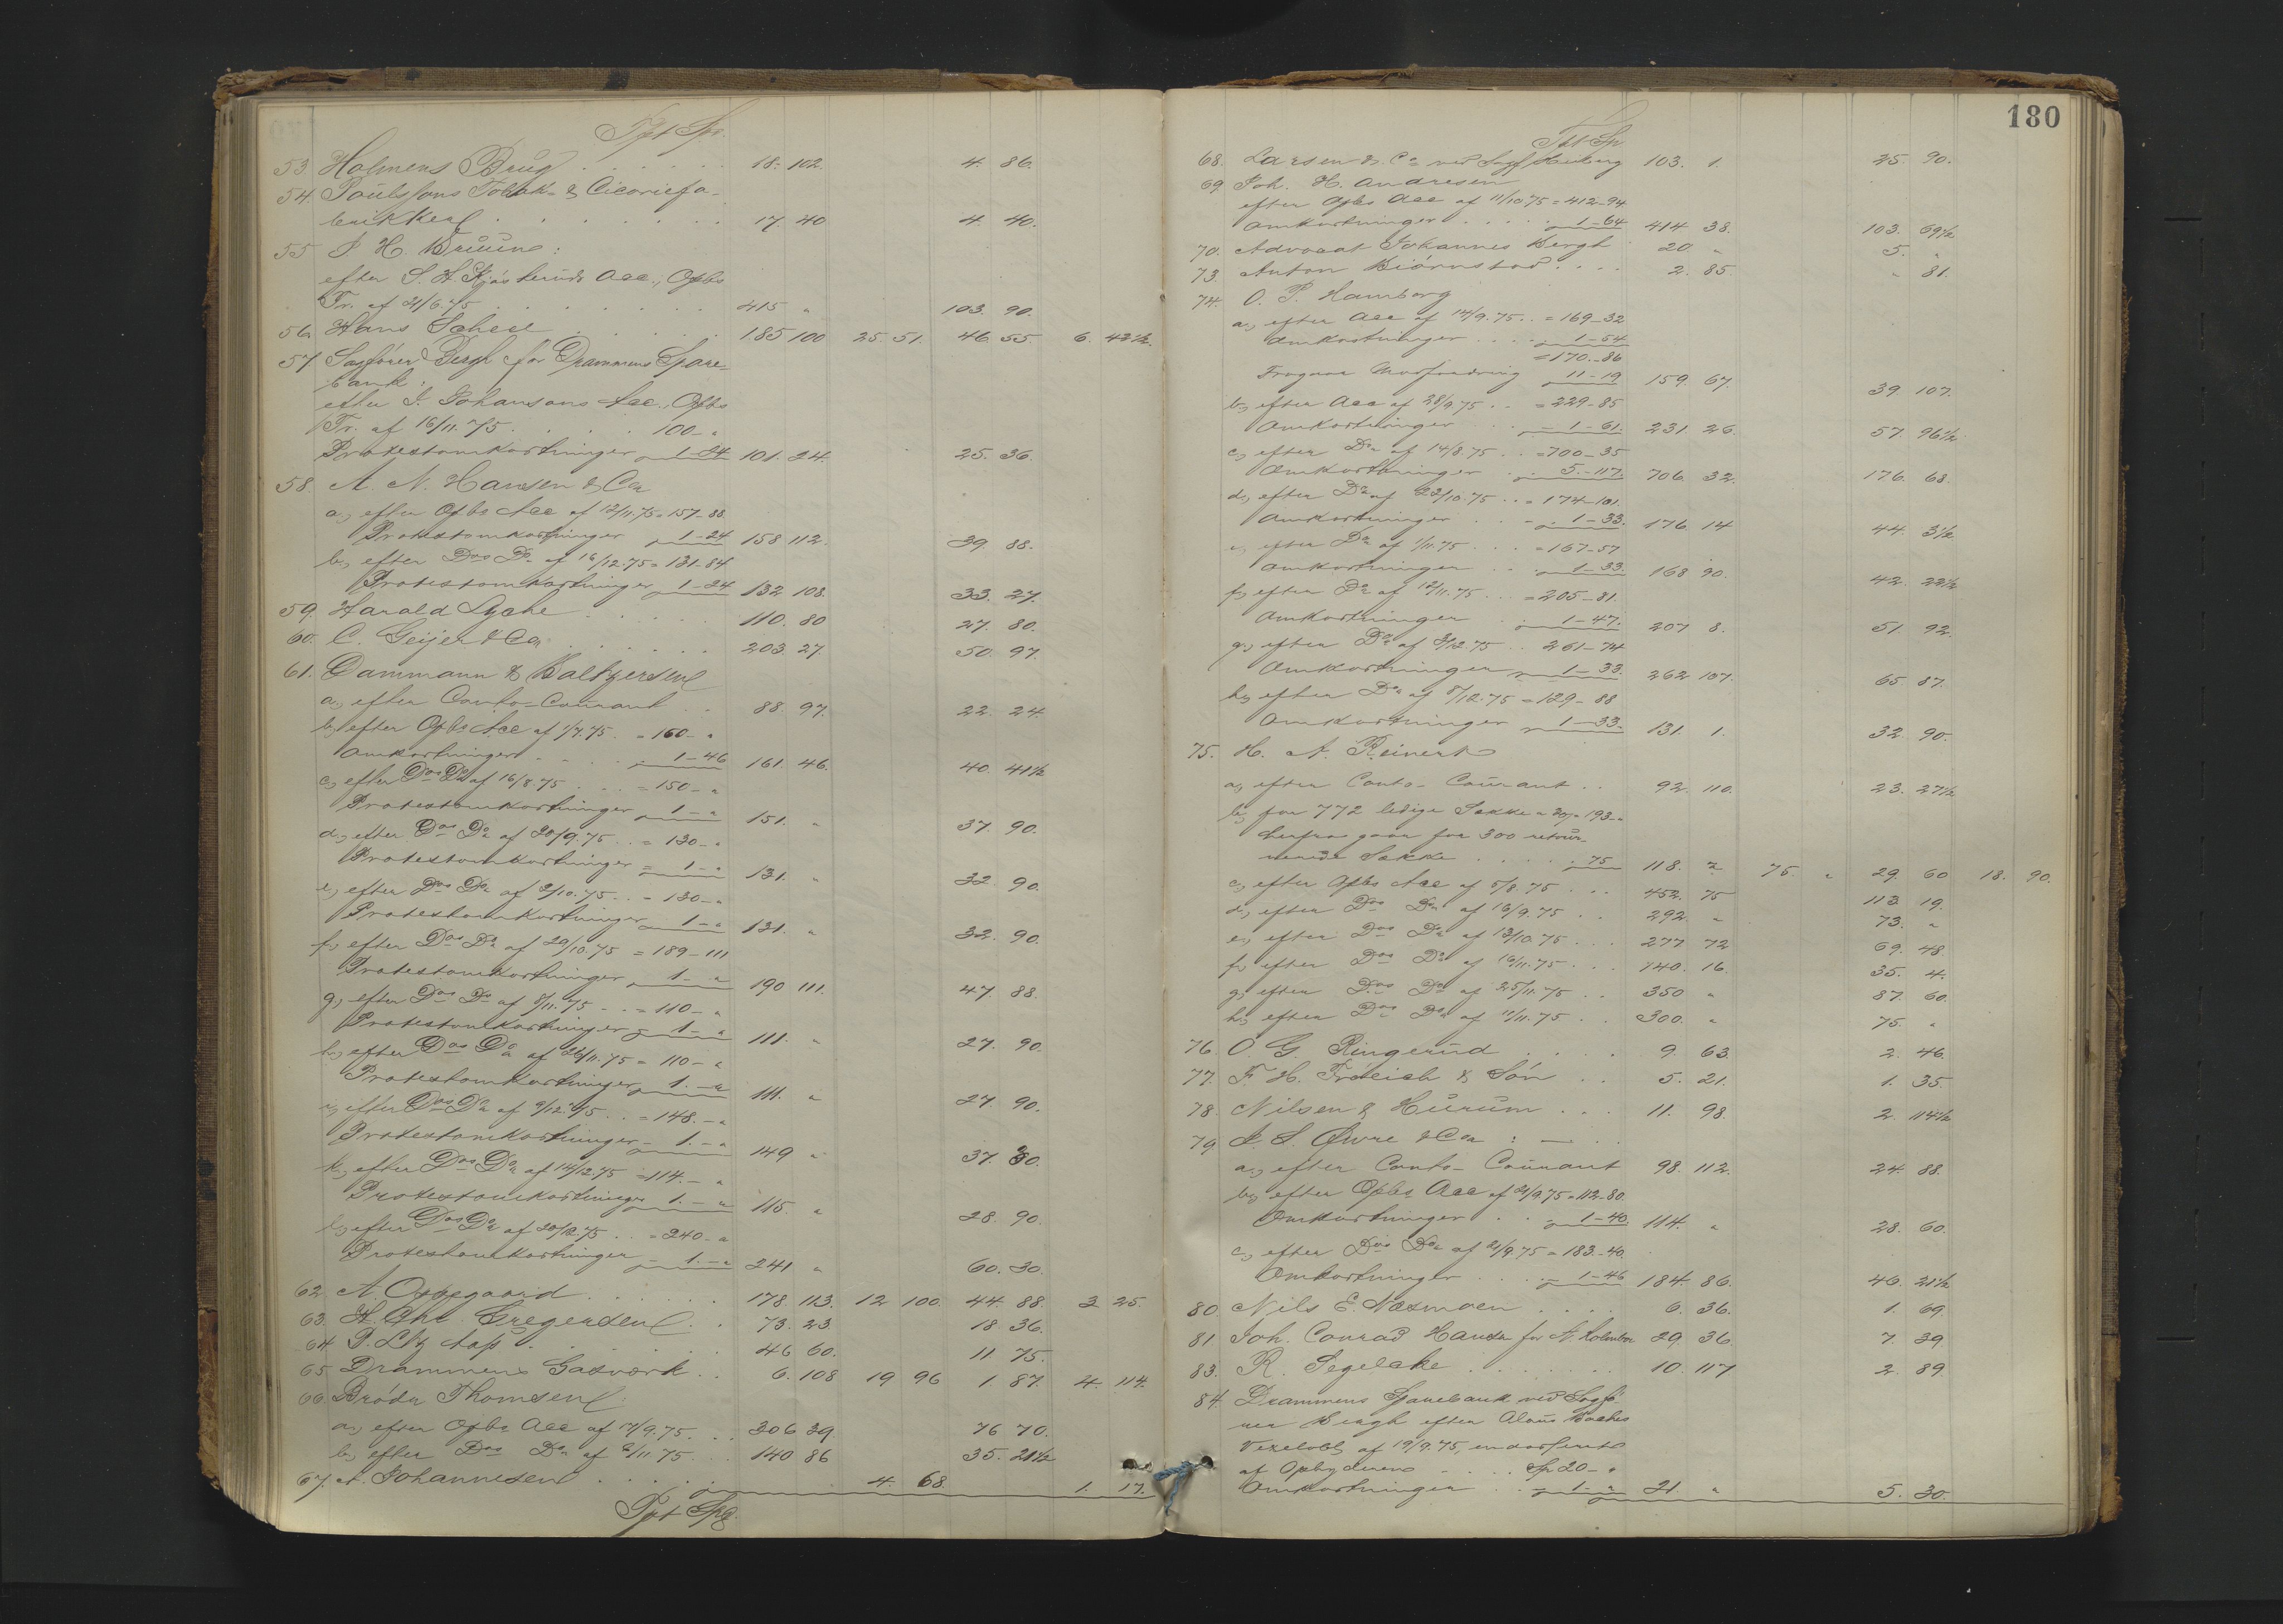 Tpt Spd.
53 Holmens Brug . . . . . 18. 102. 4. 86.
54. Paulssons Tobak- & Cicoriefa-
brikker . . . . . . . 17. 40 4. 40.
55 H. Bruun:
efter S. H. Acc., Opbs
Tr. af 21/6.75 . . . . . . . 415 " 103. 90.
56 Hans Scheel . . . . . . 185 100 25. 51. 46. 55 6. 42½.
57 Sagfører Bergh for Drammens Spare-
bank:
efter J. Johansons Acc., Opbs
Tr. af 16/11.75 . . . . 100 - "
Protestomkostninger 1-24 101. 24. 25. 36.
58. A. N. Hansen & Co
a, efter Opbs Acc af 12/11.75 = 157-88.
Protestomkostninger 1-24 158 112. 39. 88.
b, efter Dos Do af 16/12.75 = 131-84
Protestomkostninger 1-24 132 108. 33. 27.
59. Harald Lyche . . . . . 110. 80 27. 80.
60. C. Geijer & Co . . . . . . 203. 27. 50. 97.
61. Dammann & Baltzersen
a, efter Conto-Courant . . 88. 97. 22. 24.
b, efter Opbs Acc af 1/7.75 = 160- "
Omkostninger . . . . 1-46 161. 46. 40. 41½
c, efter Dos Do af 16/8.75 . . . = 150- "
Protestomkostninger 1- " 151. " 37. 90.
d, efter Dos Do af 20/9.75 . . = 130- "
Protestomkostninger = 1- " 131. " 32. 90.
e, efter Dos Do af 2/10.75 . . = 130- "
Protestomkostninger 1- " 131. " 32. 90.
f, efter Dos Do af 29/10.75 = 189-111
Protestomkostninger 1- " 190 111. 47. 88.
g, efter Dos Do af 8/11.75 - . = 110- "
Protestomkostninger 1- " 111. " 27. 90.
h, efter Dos Do af 26/11.75 = 110- "
Protestomkostninger 1.- " 111. " 27. 90.
i, efter Dos Do af 9/12.75 . . = 148.- "
Protestomkostninger - 1.- " 149 " 37. 30.
k, efter Dos Do af 14/12.75 = 114.- "
Protestomkostninger 1.- " 115. " 28. 90.
l, efter Dos Do af 20/12.75 . . = 240- "
Protestomkostninger - 1.- " 241 " 60. 30.
62. A. Oppegaard . . . . . . 178. 113. 12 100. 44. 88. 3 25.
63. H. Chr. Gregersen . . 73. 23 18. 36.
64 P. Ltz Aass . . . . . . 46 60. 11. 75.
65 Drammens Gasværk . . 6. 108 19 96 1. 87. 4. 114.
66 Brødr Thomsen:
a, efter Opbs Acc af 14/9.75 . . . 306 39 76 70.
b, efter Dos Do af 2/11.75 . . . 140 86 35. 21½
67. A. Johannesen . . . . . 4. 68. 1. 17.
Tpt Spd.
180
Tpt Sp
68. Larsen & Co ved Sagf Heiberg 103. 1. 25. 90.
69 Joh. H. Andresen
efter Opbs Acc af 11/10.75 = 412-94
Omkostninger . . . . . 1-64 414 38. 103. 69½
70. Advocat Johannes Bergh 20 " 5. "
73 Anton Biørnstad . . . . 2. 85. " 81.
74. O. P. Hamborg
a, efter Acc af 14/9.75 . . = 169-32
Omkostninger . . . . 1-54
= 170.-86
Fragaar Modfordring 11-19 159. 67. 39. 107.
b, efter Acc af 28/9.75 . . = 229-85
Omkostninger . . . - 1-61. 231. 26. 57. 96½
c, efter Do af 14/8.75 . . = 700-35
Omkostninger . . 5.-117. 706. 32. 176. 68.
d, efter Do af 22/10.75 . . = 174-101.
Omkostninger . . . 1-33. 176 14 44. 3½
e, efter Do af 1/11.75 . . . = 167-57
Omkostninger . . . 1-33. 168 90. 42. 22½
f, efter Do af 12/11.75 . . . = 205-81.
Omkostninger . . 1-47. 207 8. 51. 92.
g, efter Do af 3/12.75 . . 261-74
Omkostninger 1-33. 262 107. 65. 87.
h, efter Do af 8/12.75 = 129-88
Omkostninger 1-33. 131. 1. 32. 90.
75. H. A. Reinert
a, efter Conto-Courant . . 92. 110. 23. 27½
b, for 772 ledige Sække a 30 = 193- "
herfra gaar for 300 retour-
nerede Sække . . . . . 75 118. " 75. " 29. 60 18. 90.
c, efter Opbs Acc af 5/8.75 . . . 452. 75 113. 19.
d, efter Dos Do af 16/9.75 . . 292. " 73. "
e, efter Dos Do af 13/10.75 . . . 277 72 69. 48.
f, efter Dos Do af 16/11.75 . . . 140. 16. 35. 4.
g, efter Dos Do af 25/11.75 . . 350 " 87. 60.
h, efter Dos Do af 11/11.75 . . 300. " 75. "
76. O. G. Ringerud . . . . 9. 63. 2. 46.
77. F. H. Frølich & Søn . . 5. 21. 1. 35.
78. Nilsen & Hurum . . . 11. 98. 2. 114½
79. J. S. Øvre & Co : —
a, efter Conto-Courant 98. 112. 24. 88.
b, efter Opbs Acc af 21/9.75 = 112-80.
Omkostninger . . 1-40. 114. " 28. 60.
c, efter Dos Do af 21/9.75 = 183.-40.
Omkostninger . . . 1-46 184. 86. 46. 21½
80 Nils E. Næsmoen . . . . 6. 36. 1. 69.
81. Joh. Conrad Hansen for A. 29. 36. 7. 39
83. R. Segelcke . . . . . . 10. 117 2. 89
84. Drammens Sparebank ved Sagfø-
rer Bergh efter
Vexelobl. af 19/9.75, endosseret
af Opbyderen - . . . Sp 20- "
Omkostninger . . - 1- " 21 " 5. 30.